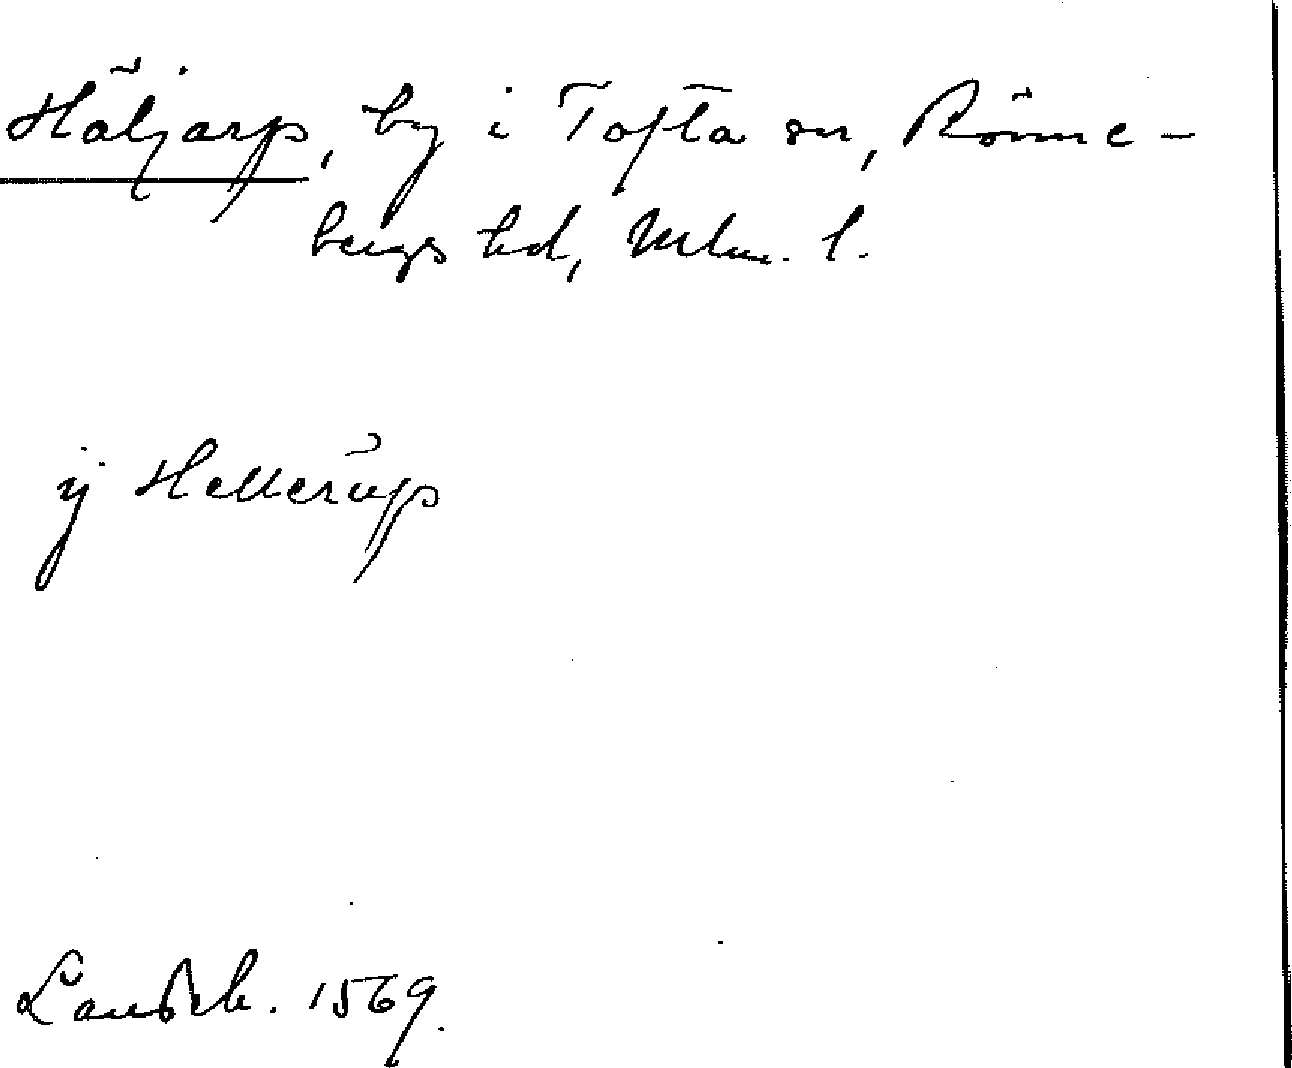 Häljarp, by i Tofta sn, Rönne-
bergs hd, Mlm. l.
ij Hellerup
Landeb. 1569.